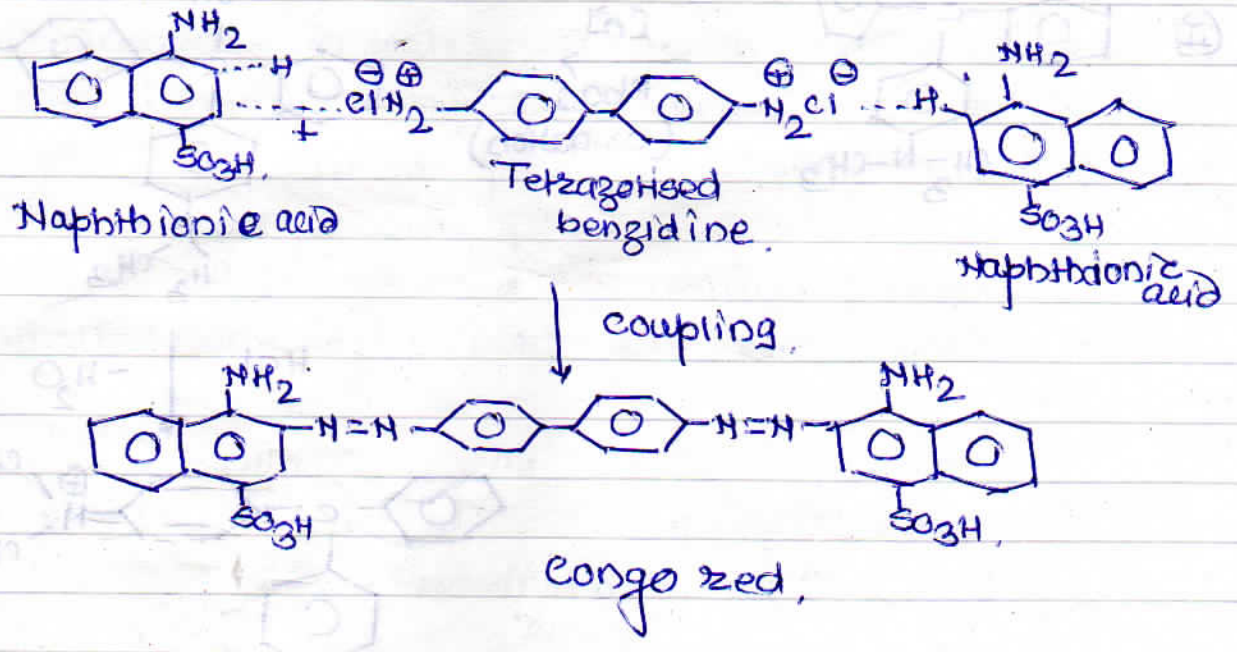 NH2 NH2
H ⊖ ⊕ ⊕ ⊖
+ ClN2 N2Cl H
SO3H. SO3H
Naphthionic acid Tetrazotised benzidine. Naphthionic acid
coupling.
NH2 NH2
N=N N=N
SO3H SO3H.
Congo red.